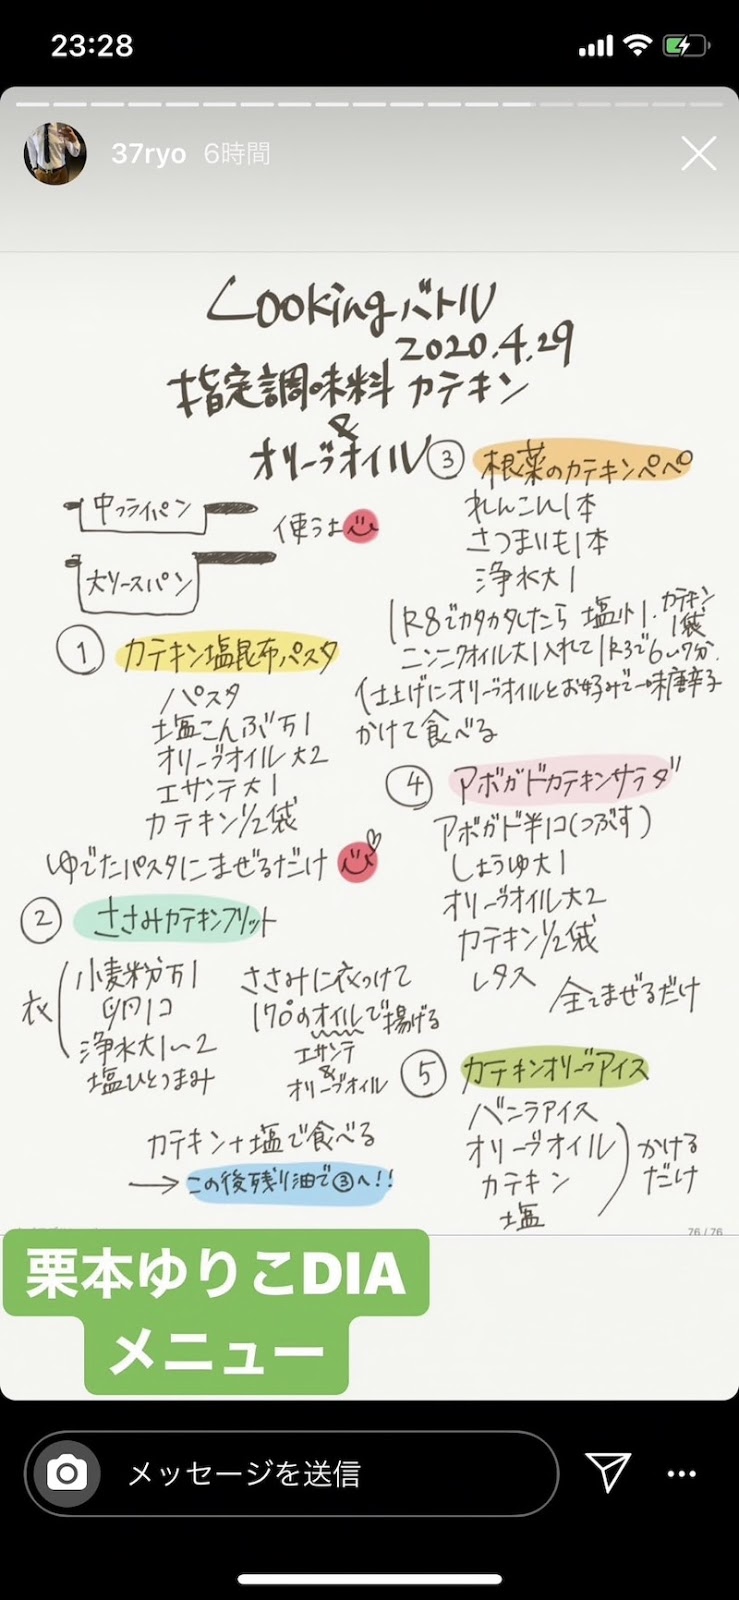 23:28
37ryo 6時間
Cookingバトル
2020.4.29
指定調味料 カテキン
&
オリーブオイル
中フライパン
大ソースパン
使うよ
① カテキン塩昆布パスタ
パスタ
塩こんぶ万1
オリーブオイル大2
エサンテ大1
カテキン1/2袋
ゆでたパスタにまぜるだけ
② ささみカテキンフリット
衣
小麦粉万1
卵1コ
浄水大1〜2
塩ひとつまみ
ささみに衣つけて
170°のオイルで揚げる
エサンテ
&
オリーブオイル
カテキン+塩で食べる
→この後残り油で③へ!!
③ 根菜のカテキンペペ
れんこん1本
さつまいも1本
浄水大1
IR8でカタカタしたら 塩小1.カテキン1袋
ニンニクオイル大1入れてIR3で6〜7分.
仕上げにオリーブオイルとお好みで一味唐辛子
かけて食べる
④ アボガドカテキンサラダ
アボガド半コ(つぶす)
しょうゆ大1
オリーブオイル大2
カテキン1/2袋
レタス
全てまぜるだけ
⑤ カテキンオリーブアイス
バニラアイス
オリーブオイル
カテキン
塩
かける
だけ
76 / 76
栗本ゆりこDIA
メニュー
メッセージを送信